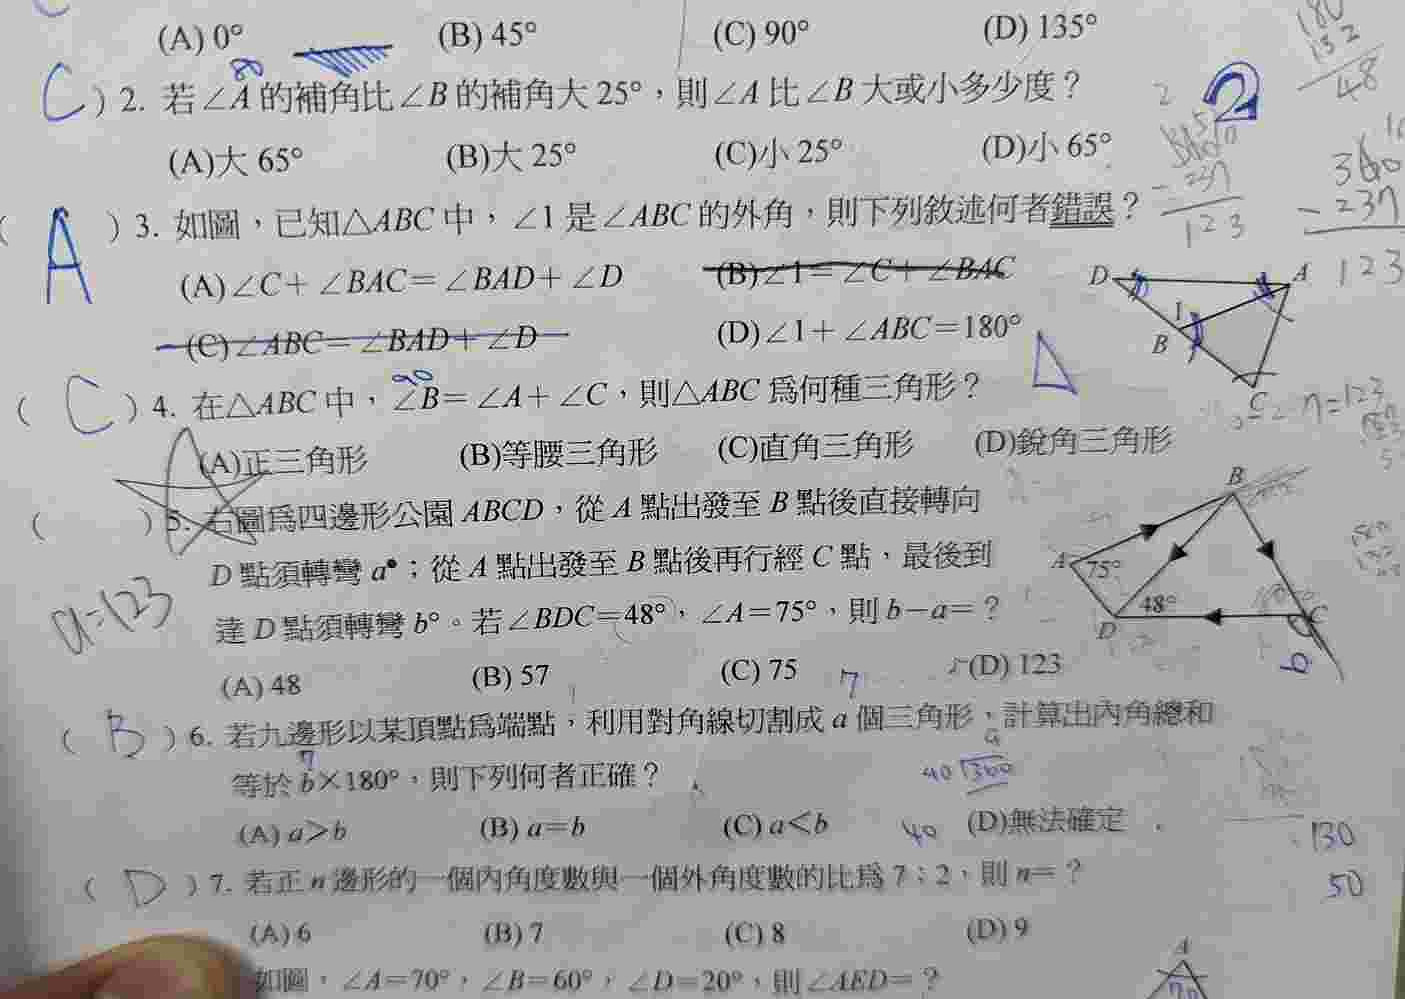 (A) 0° (B) 45° (C) 90° (D) 135°
80
C ) 2. 若∠A的補角比∠B的補角大 25°，則∠A 比∠B 大或小多少度？
(A)大 65° (B)大 25° (C)小 25° (D)小 65°
2
180
132
48
( A ) 3. 如圖，已知△ABC 中，∠1 是∠ABC 的外角，則下列敘述何者錯誤？
(A)∠C+∠BAC=∠BAD+∠D (B)∠1=∠C+∠BAC
(C)∠ABC=∠BAD+∠D (D)∠1+∠ABC=180°
-237
123
360
-237
123
D A 1 B C
90
( C ) 4. 在△ABC 中，∠B=∠A+∠C，則△ABC 為何種三角形？
(A)正三角形 (B)等腰三角形 (C)直角三角形 (D)銳角三角形
n=123
( ) 5. 右圖為四邊形公園 ABCD，從 A 點出發至 B 點後直接轉向
D 點須轉彎 a°；從 A 點出發至 B 點後再行經 C 點，最後到
達 D 點須轉彎 b°。若∠BDC=48°，∠A=75°，則 b-a=？
a=123
(A) 48 (B) 57 (C) 75 (D) 123
B A 75° 48° D C b
7
( B ) 6. 若九邊形以某頂點為端點，利用對角線切割成 a 個三角形，計算出內角總和
7
等於 b×180°，則下列何者正確？
9
40 360
(A) a>b (B) a=b (C) a<b (D)無法確定
40
130
50
( D ) 7. 若正 n 邊形的一個內角度數與一個外角度數的比為 7：2，則 n=？
(A) 6 (B) 7 (C) 8 (D) 9
如圖，∠A=70°，∠B=60°，∠D=20°，則∠AED=？
A
70